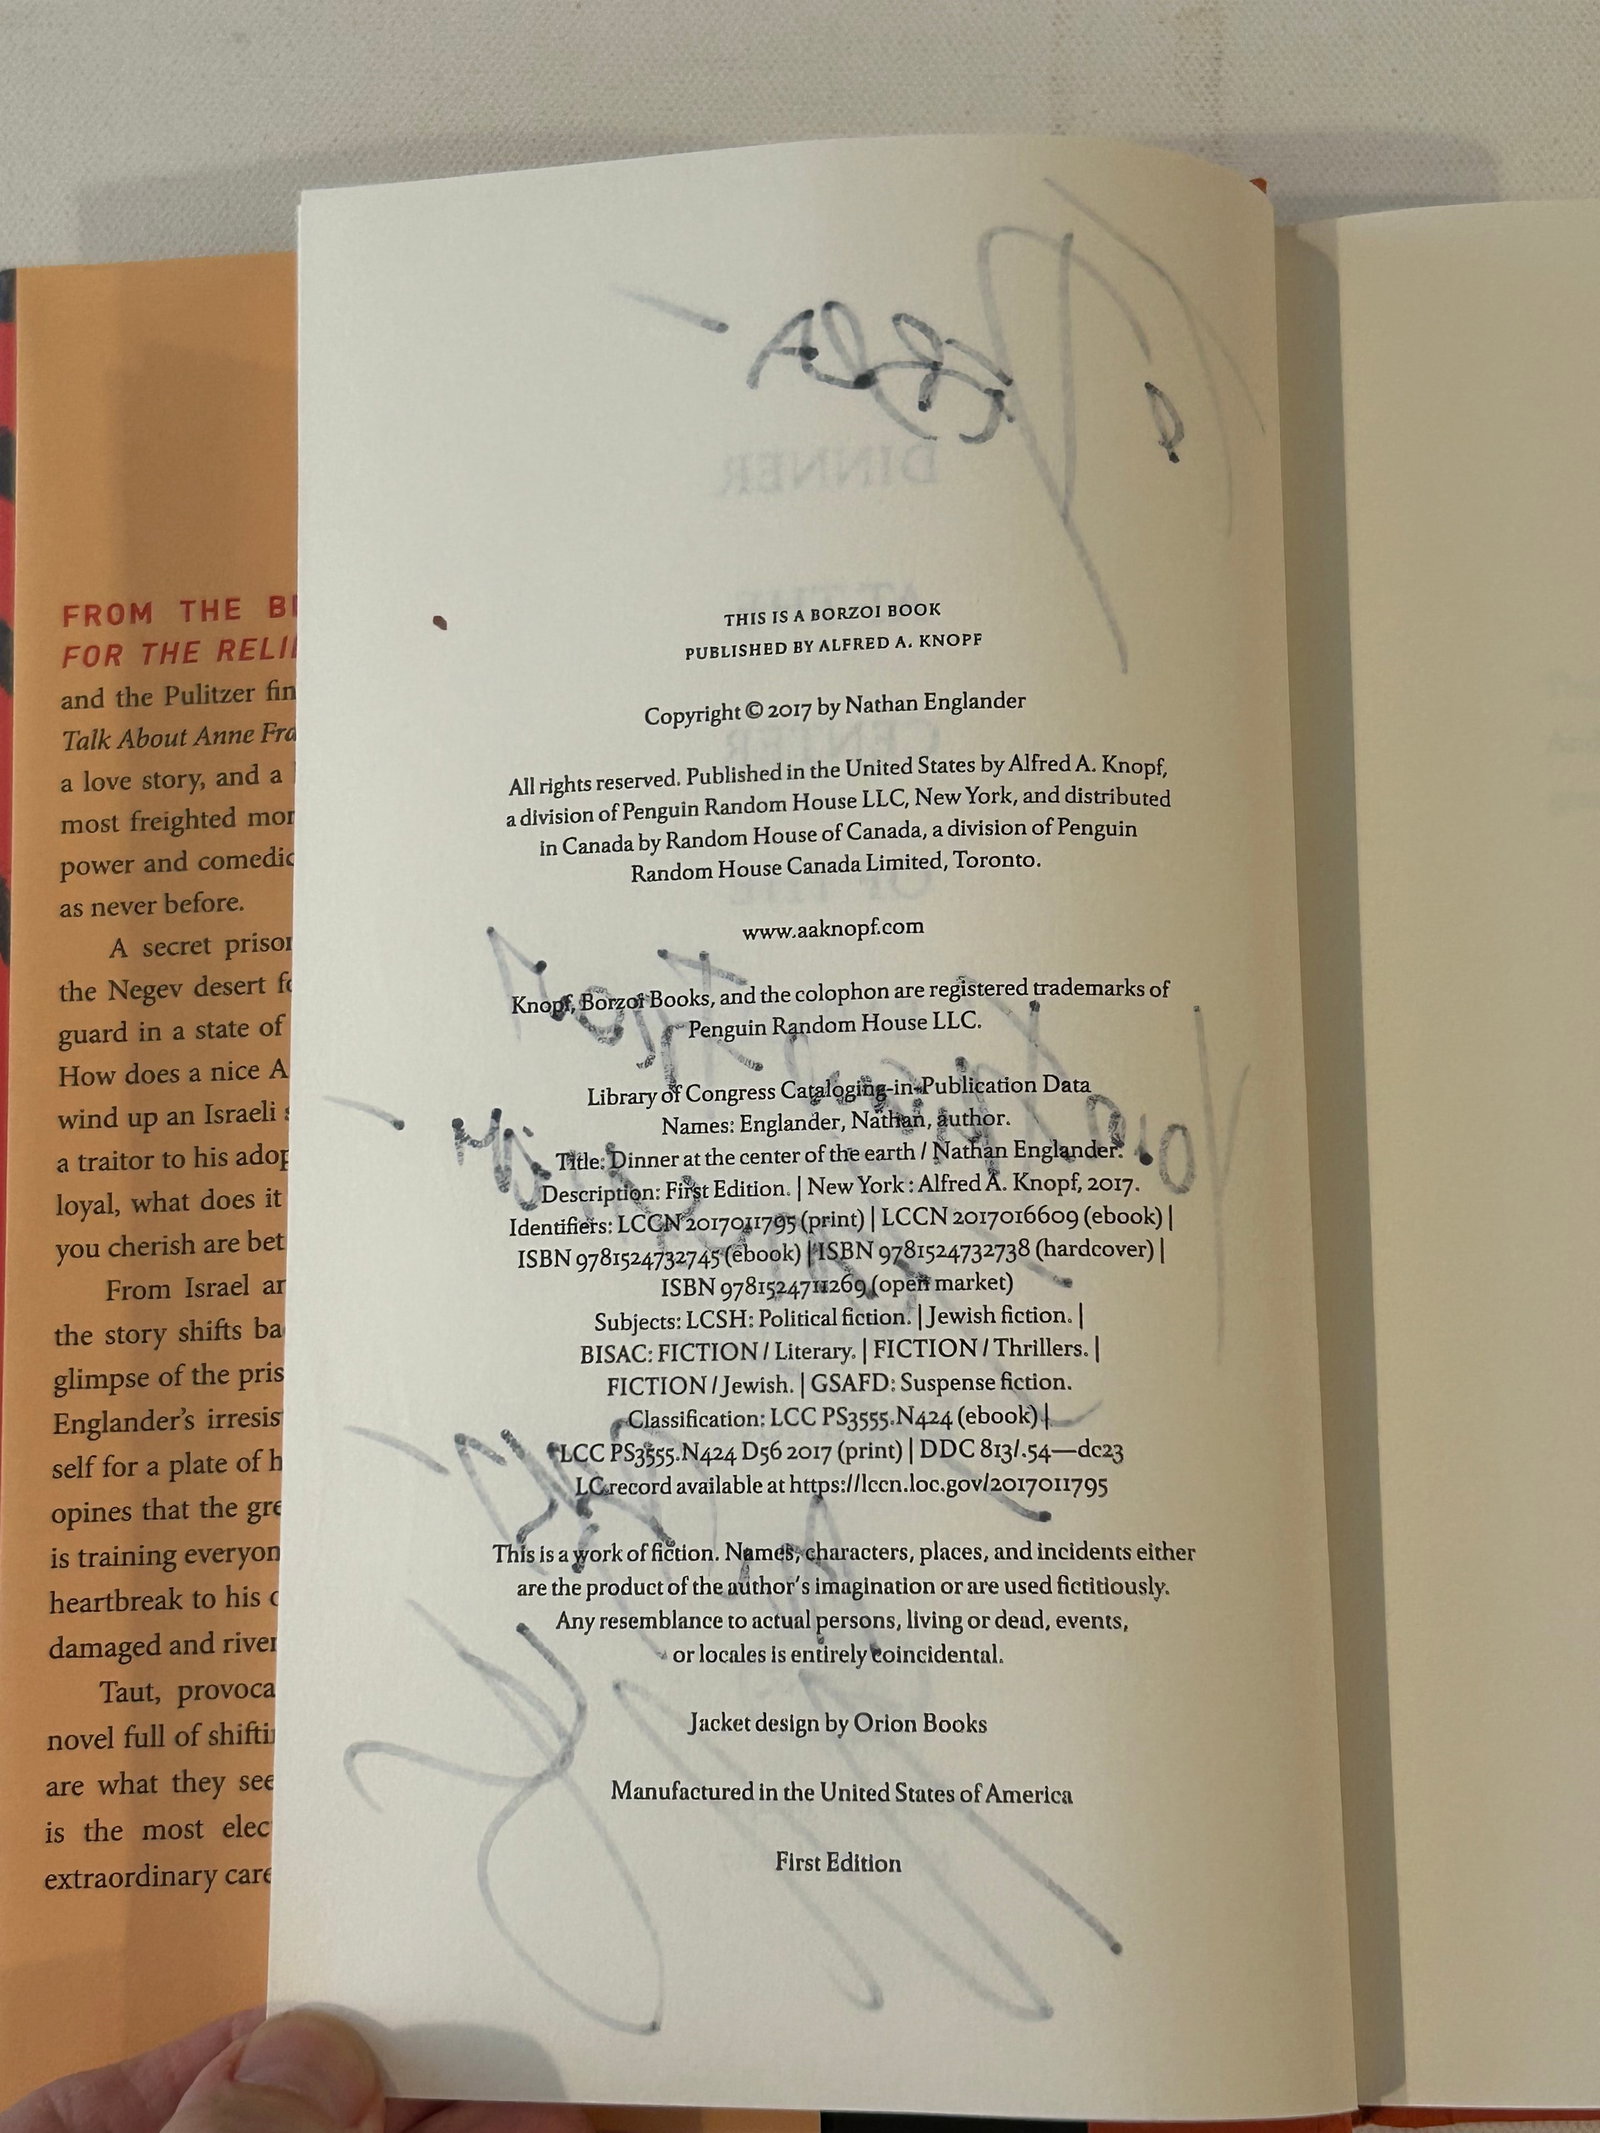 FROM THE
FOR THE
and the Pulitzer
Talk About Anne
a love story, and a
most freighted
power and
as never before.
A secret
the Negev desert
guard in a state of
How does a nice
wind up an Israeli
a traitor to his
loyal, what does it
you cherish are
From Israel
the story shifts
glimpse of the
Englander's
self for a plate of
opines that the
is training
heartbreak to his
damaged and
Taut,
novel full of
are what they
is the most
extraordinary
DINNER
THIS IS A BORZOI BOOK
PUBLISHED BY ALFRED A. KNOPF
Copyright © 2017 by Nathan Englander
All rights reserved. Published in the United States by Alfred A. Knopf,
a division of Penguin Random House LLC, New York, and distributed
in Canada by Random House of Canada, a division of Penguin
Random House Canada Limited, Toronto.
www.aaknopf.com
Knopf, Borzoi Books, and the colophon are registered trademarks of
Penguin Random House LLC.
Library of Congress Cataloging-in-Publication Data
Names: Englander, Nathan, author.
Title: Dinner at the center of the earth / Nathan Englander.
Description: First Edition. | New York : Alfred A. Knopf, 2017.
Identifiers: LCCN 2017011795 (print) | LCCN 2017016609 (ebook) |
ISBN 9781524732745 (ebook) | ISBN 9781524732738 (hardcover) |
ISBN 9781524711269 (open market)
Subjects: LCSH: Political fiction. | Jewish fiction. |
BISAC: FICTION / Literary. | FICTION / Thrillers. |
FICTION / Jewish. | GSAFD: Suspense fiction.
Classification: LCC PS3555.N424 (ebook) |
LCC PS3555.N424 D56 2017 (print) | DDC 813/.54—dc23
LC record available at https://lccn.loc.gov/2017011795
This is a work of fiction. Names, characters, places, and incidents either
are the product of the author's imagination or are used fictitiously.
Any resemblance to actual persons, living or dead, events,
or locales is entirely coincidental.
Jacket design by Orion Books
Manufactured in the United States of America
First Edition